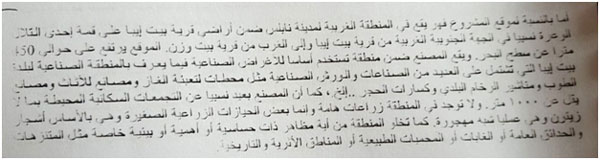 أما بالنسبة لموقع المشروع فهو يقع في المنطقة الغربية لمدينة نابلس ضمن أراضي قرية بيت إيبا على قمة إحدى التلال
الوعرة نسبيا في الجهة الجنوبية الغربية من قرية بيت إيبا وإلى الغرب من قرية بيت وزن. الموقع يرتفع على حوالي 450
مترا عن سطح البحر. ويقع المصنع ضمن منطقة تستخدم أساسا للأغراض الصناعية فيما يعرف بالمنطقة الصناعية لبلدة
بيت إيبا التي تشتمل على العديد من الصناعات والورش الصناعية مثل محطات لتعبئة الغاز ومصانع للأثاث ومصانع
الطوب ومناشير الرخام البلدي وكسارات الحجر ..إلخ، كما أن المصنع بعيد نسبيا عن التجمعات السكانية المحيطة بما لا
يقل عن ١٠٠٠ متر. ولا توجد في المنطقة زراعات هامة وإنما بعض الحيازات الزراعية الصغيرة وهي بالأساس أشجار
زيتون وهي عمليا شبه مهجورة. كما تخلو المنطقة من أية مظاهر ذات حساسية أو أهمية أو بيئية خاصة مثل المتنزهات
والحدائق العامة أو الغابات أو المحميات الطبيعية أو المناطق الأثرية والتاريخية.